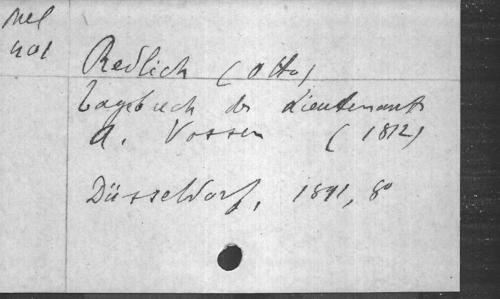 Mel
401
Redlich (Otto)
Tagebuch des Lieutenants
A. Vossen (1812)
Düsseldorf, 1891, 8°